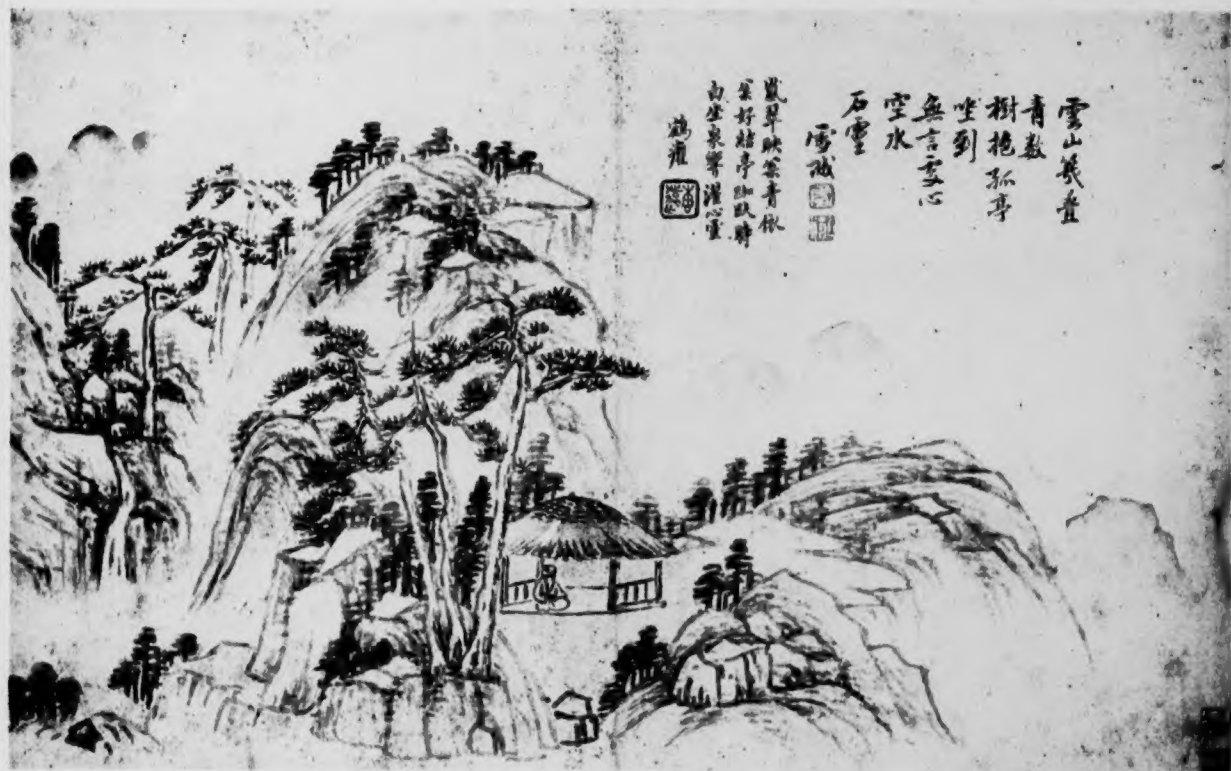 雲山幾疊
青数
樹抱孤亭
坐到
無言處心
空水
石靈
雪
嵐翠映岩青依
岩好結亭跏趺時
向坐泉響濯心靈
鶴雍